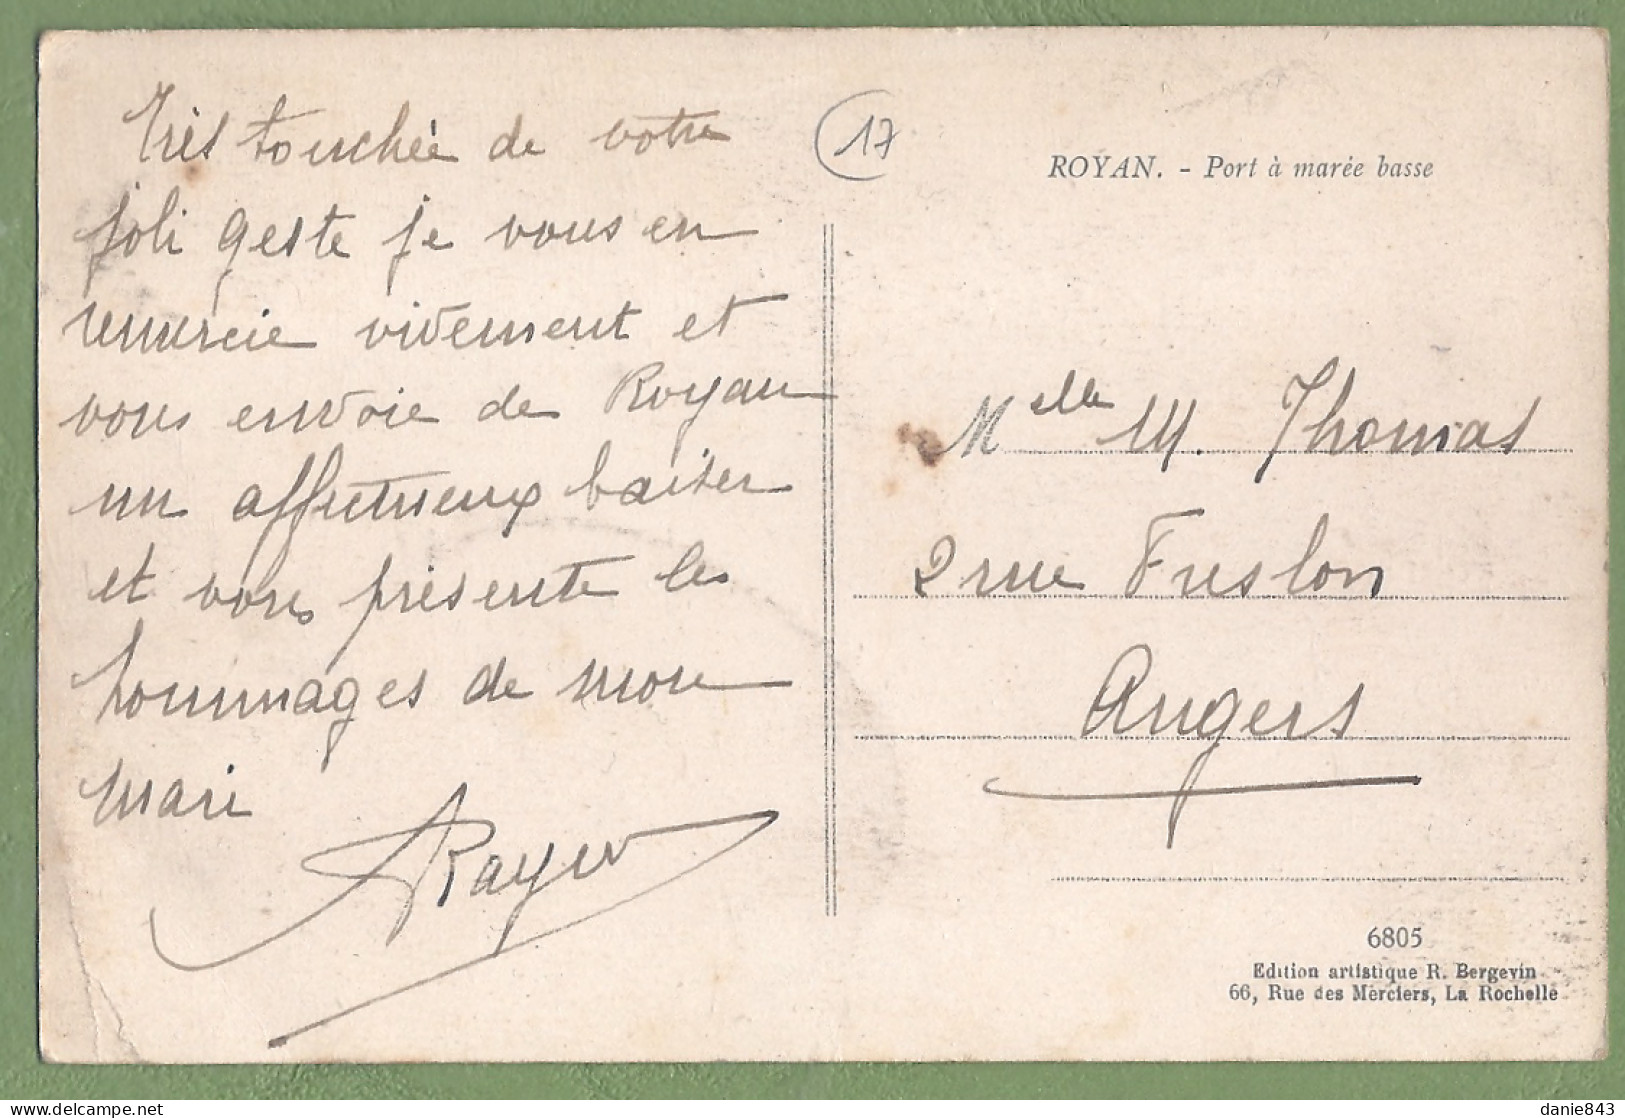 Très touchée de votre
joli geste je vous en
remercie vivement et
vous envoie de Royan
un affectueux baiser
et vous présente les
hommages de mon
mari
17
ROYAN. - Port à marée basse
Melle M. Thomas
2 rue
Angers
6805
Edition artistique R. Bergevin
66, Rue des Merciers, La Rochelle
danie843